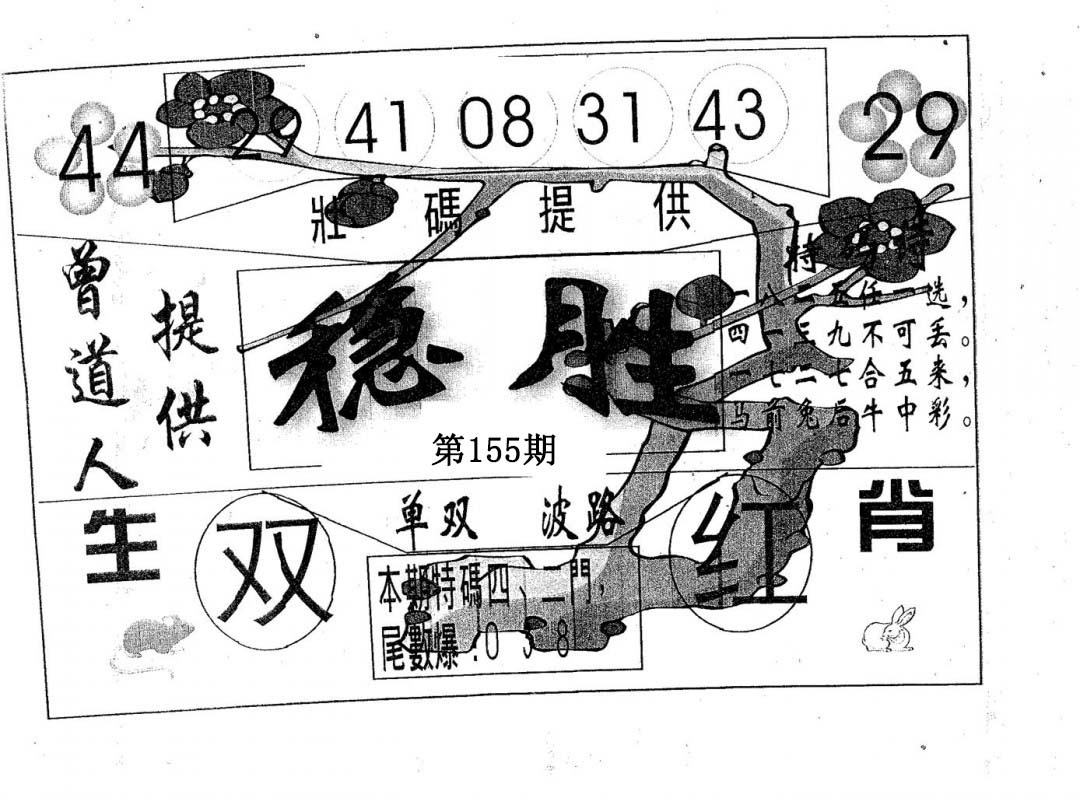 44 29 41 08 31 43 29
壯碼提供
曾道人
提供
稳胜
第155期
特 诗
一八二五任一选，
四一三九不可丢。
一七二七合五来，
马前兔后牛中彩。
单双 波路
生肖
双
红
本期特碼四、二門，
尾數爆:0 3 8